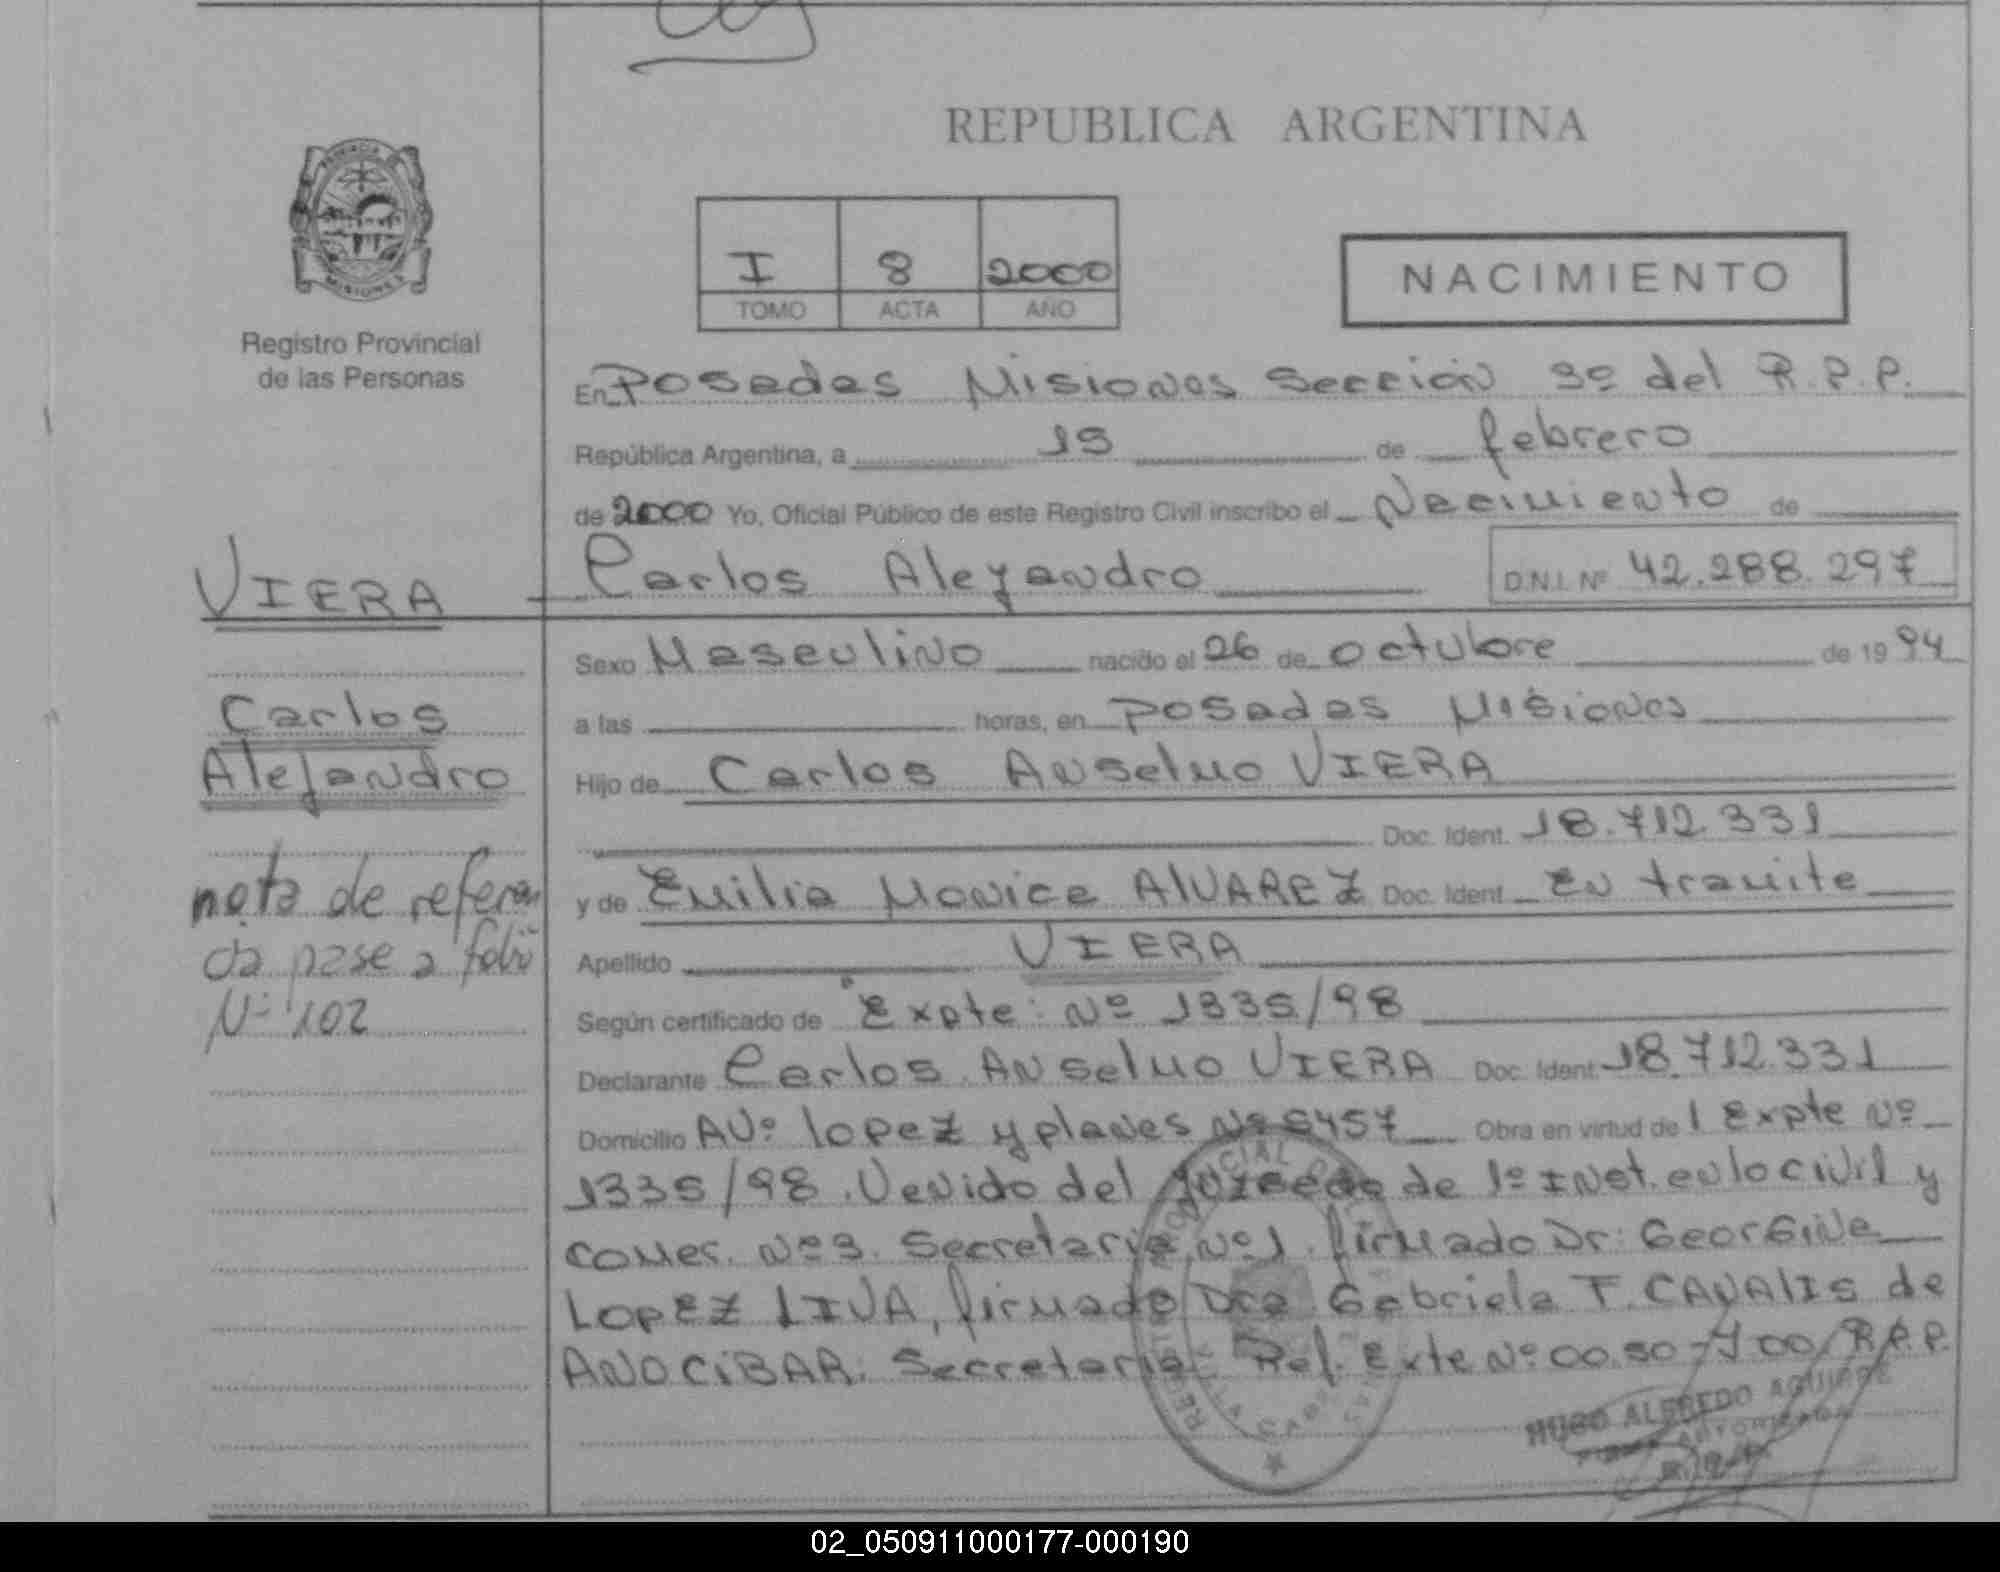 REPUBLICA ARGENTINA
PROVINCIA DE
MISIONES
Registro Provincial
de las Personas
I 8 2000
TOMO ACTA AÑO
NACIMIENTO
En Posadas Misiones Sección 3º del R.P.P.
República Argentina, a 15 de febrero
de 2000 Yo, Oficial Público de este Registro Civil inscribo el Nacimiento de
VIERA Carlos Alejandro D.N.I. Nº 42.288.297
Sexo Masculino nacido el 26 de octubre de 1994
Carlos
a las horas, en Posadas Misiones
Alejandro
Hijo de Carlos Anselmo VIERA
Doc. Ident. 18.712.331
nota de referen
y de Emilia Monica AlVAREZ Doc. Ident. En tramite
cia pase a folio
Apellido VIERA
Nº 102
Según certificado de Expte: Nº 1335/98
Declarante Carlos Anselmo VIERA Doc. Ident. 18.712.331
Domicilio AVº lopez y planes Nº 5457 Obra en virtud de l Expte Nº
1335/98. Venido del Juzgado de 1º INst. en lo civil y
comer. Nº 3. Secretaria Nº 1. firmado Dr: GeorGina
LopEZ LIVA, firmado Dra Gabriela T. CANALIS de
ANOCiBAR. Secretaria Ref. Exte Nº 00.50-700/R.P.P.
HUGO ALFREDO AGUIRRE
AUTORIZADA
02_050911000177-000190